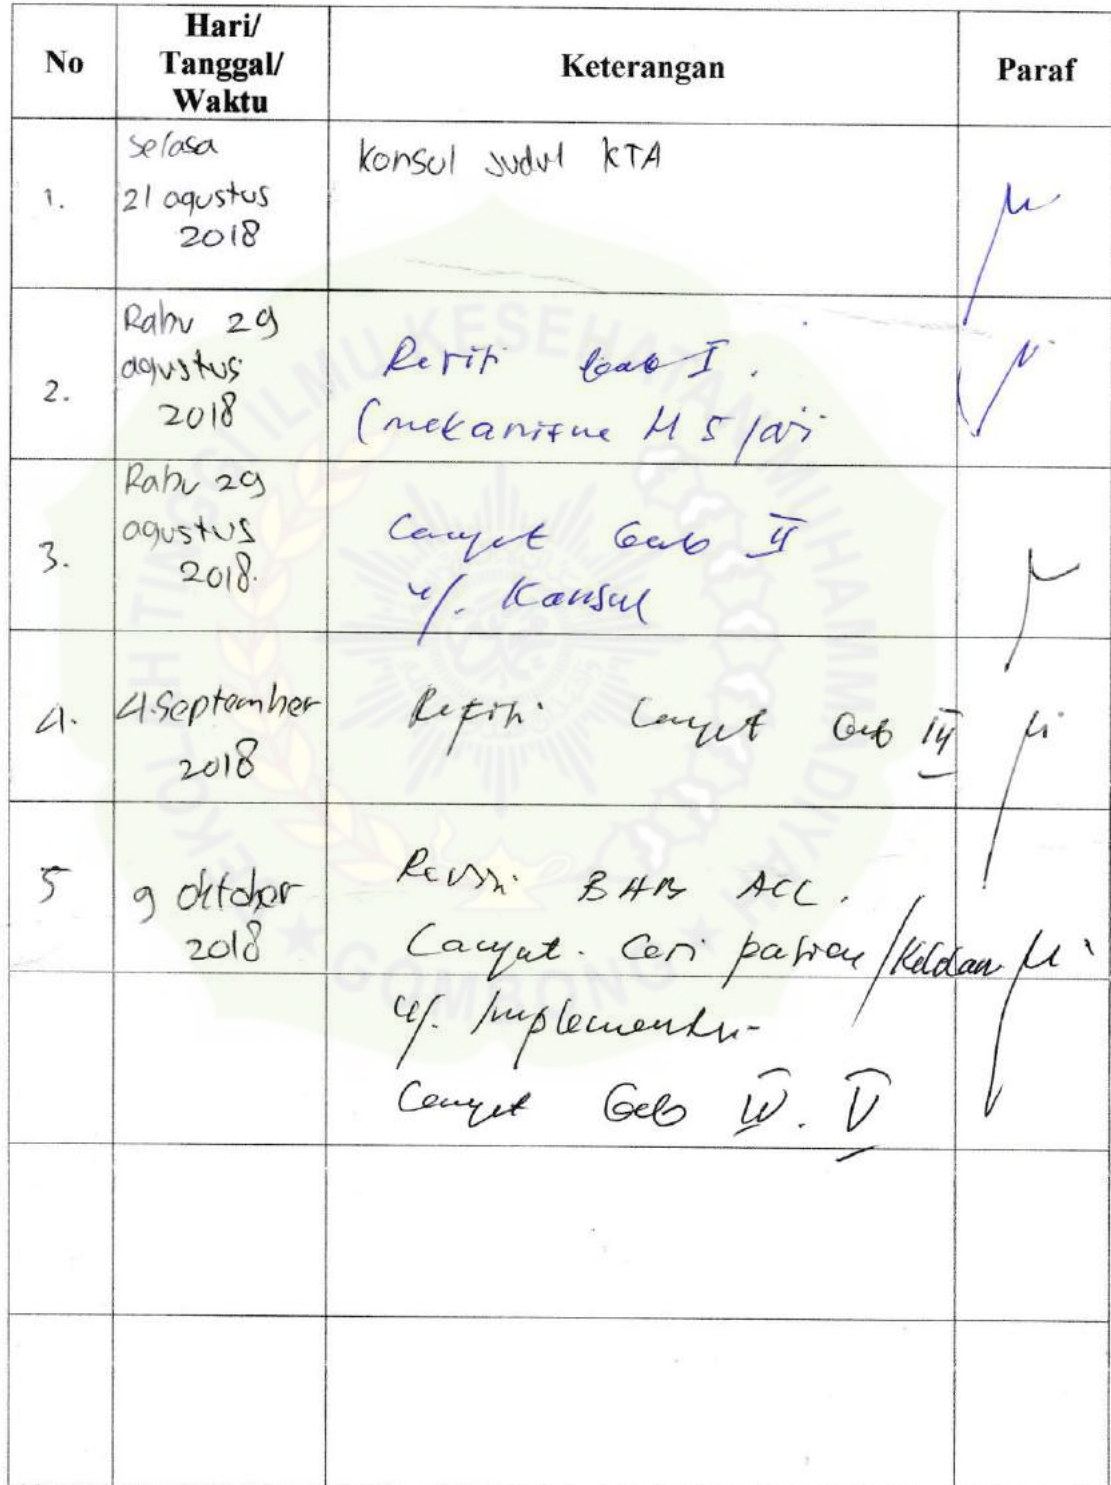 No
Hari/
Tanggal/
Waktu
Keterangan
Paraf
1.
Selasa
21 agustus
2018
Konsul Judul KTA
2.
Rabu 29
agustus
2018
Bab I.
(mekanisme
3.
Rabu 29
agustus
2018.
Lanjut Bab II
u/. Konsul
4.
4 September
2018
Lanjut Bab III
5
9 oktober
2018
Revisi BAB ACC.
Lanjut. Cari pasien /
u/. Implementasi
Lanjut Bab IV. V
SEKOLAH TINGGI ILMU KESEHATAN MUHAMMADIYAH
GOMBONG